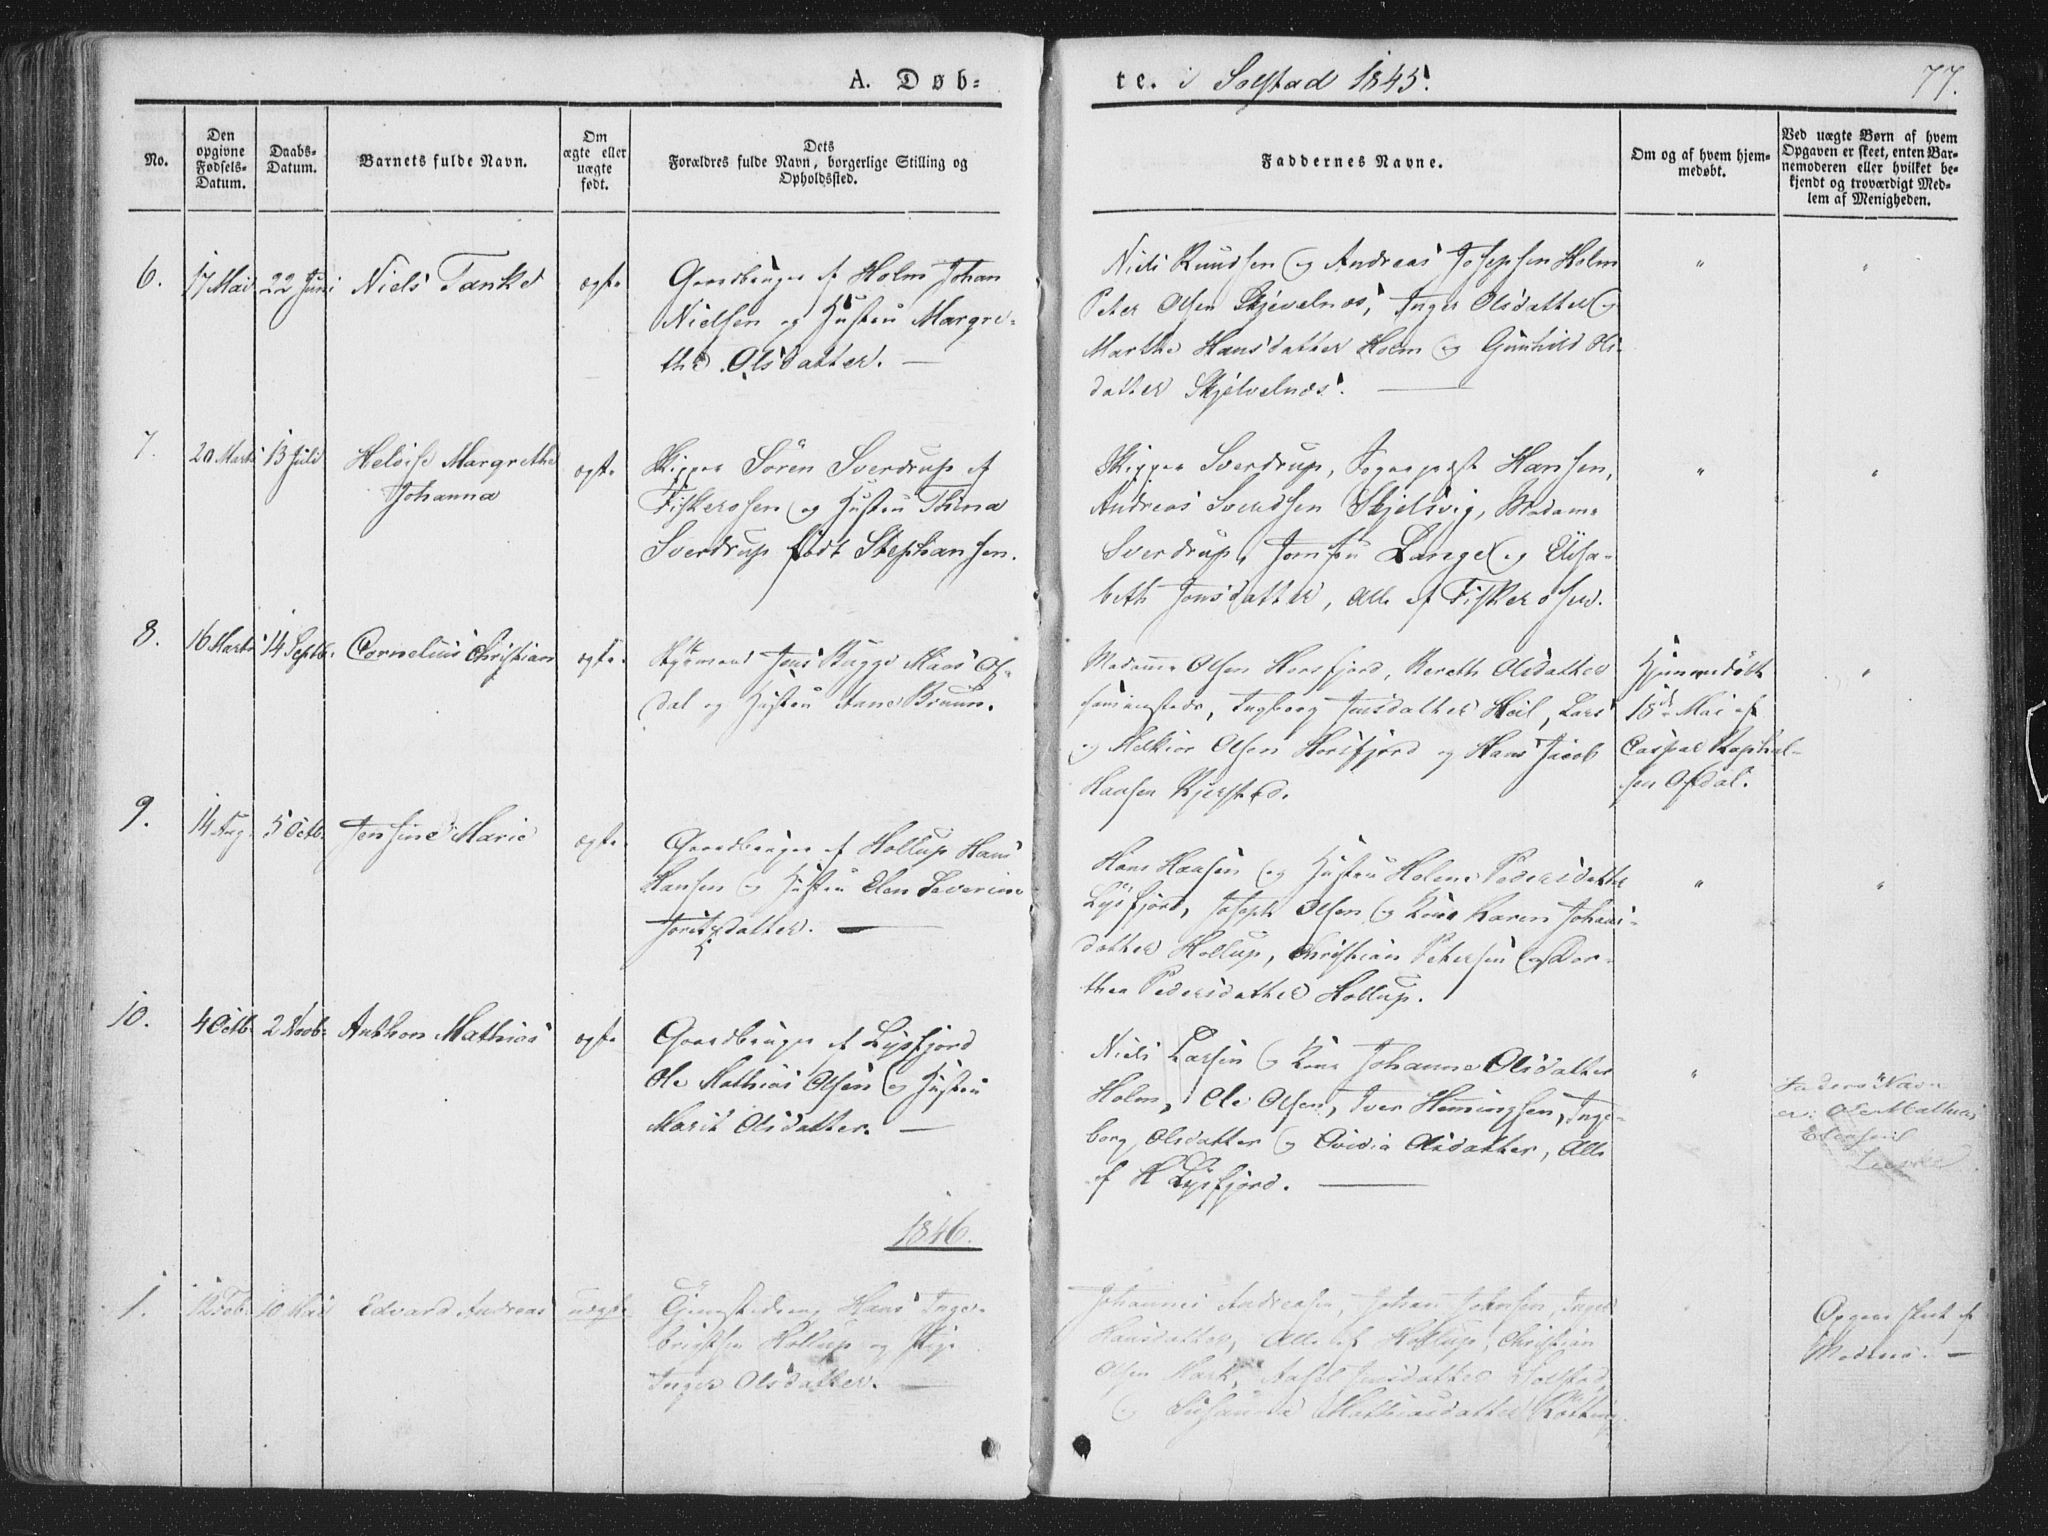 A. Døb=
te. i Solstad 1845.
77.
No.
Den opgivne Fødsels-Datum.
Daabs-Datum.
Barnets fulde Navn.
Om ægte eller uægte født.
Dets Forældres fulde Navn, borgerlige Stilling og Opholdssted.
Faddernes Navne.
Om og af hvem hjemmedøbt.
Ved uægte Børn af hvem Opgaven er skeet, enten Barnemoderen eller hvilket bekjendt og troværdigt Medlem af Menigheden.
6. 17 Mai 22 Juni Niels Tanke ægte
Gaardbruger af Holm Johan
Nielsen og Hustru Margre-
the Olsdatter. —
Niels Knudsen og Andreas Josephsen Holm
Peter Olsen Skjevelnæs, Inger Olsdatter og
Marthe Hansdatter Holm og Gunhild Ols-
datter Skjelvelnæs. —
" "
7. 20 Marts 13 Juli Heloise Margrethe
Johanna
ægte
Skipper Sören Sverdrup af
Fiskerosen og Hustru Thina
Sverdrup født Stephansen.
Skipper Sverdrup, Sognepræst Hansen,
Andreas Svendsen Skjelsvig, Madame
Sverdrup, Jomfru Lange og Elisa-
beth Jonsdatter, Alle af Fiskerosen.
" "
8. 16 Marts 14 Septb. Cornelius Christian ægte.
Styrmand Jens Bugge Maas Of-
dal og Hustru Anne Bruun.
Madame Olsen Horsfjord, Bereth Olsdatter
sammesteds, Ingborg Jensdatter Heil, Lars
og Melkior Olsen Horsfjord og Hans Jacob
Hansen Kjerstad.
Hjemmedøbt
18de Mai af
Caspar Raphael-
sen Ofdal.
"
9. 14 Aug. 5 Octb. Jensine Marie ægte.
Gaardbruger af Hollup Hans
Hansen og Hustru Elen Severine
datter. —
Hans Hansen og Hustru Helene Pedersdatter
Lysfjord, Joseph Olsen og Kone Karen Johans-
datter Hollup, Christian Petersen og Dor-
thea Pedersdatter Hollup.
" "
10. 4 Octb. 2 Novb. Anthon Mathias ægte
Gaardbruger af Lysfjord
Ole Mathias Olsen og Hustru
Marit Olsdatter. —
Niels Larsen og Kone Johanne Olsdatter
Holm, Ole Olsen, Iver Hemingsen, Inge-
borg Olsdatter og Ovidia Olsdatter, Alle
af Lysfjord. —
"
Faders Navn
er: Ole Mathias
1846.
1. 12 Feb. 10 Mai Edvard Andreas uægte
Hans Inge-
brigtsen Hollup og Pige
Inger Olsdatter. —
Johannes Andreasen, Johan Johnsen, Inger
Hansdatter, Alle af Hollup, Christian
Olsen Mark, Jensdatter Solstad
og Susanna Mathiasdatter
Opgav. skeet af
Moderen. —